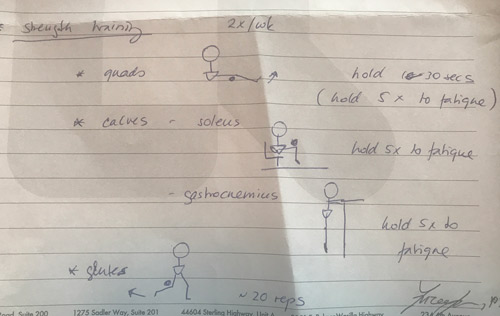 * Strength training 2x/wk
* quads hold 30 secs
(hold 5x to fatigue)
* calves - soleus
hold 5x to fatigue
- gastrocnemius
hold 5x to
fatigue
* glutes
~20 reps
Suite 200 1275 Sadler Way, Suite 201 44604 Sterling Highway, Highway